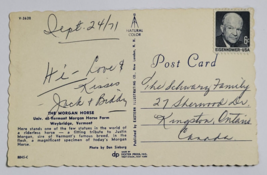 Sept 24/71
A
NATURAL
COLOR
6c
EISENHOWER·USA
Hi - Love &
Kisses
Jack & Biddy
Post Card
The Schwarz Family
27 Sherwood Dr.
Kingston, Ontario
Canada
THE MORGAN HORSE
Univ. of Vermont Morgan Horse Farm
Weybridge, Vermont
Here stands one of the few statues in the world of
a riderless horse — a fitting tribute to Justin
Morgan, sire of Vermont's famous breed. In the
field, a magnificent specimen of today's Morgan
Horse.
dp